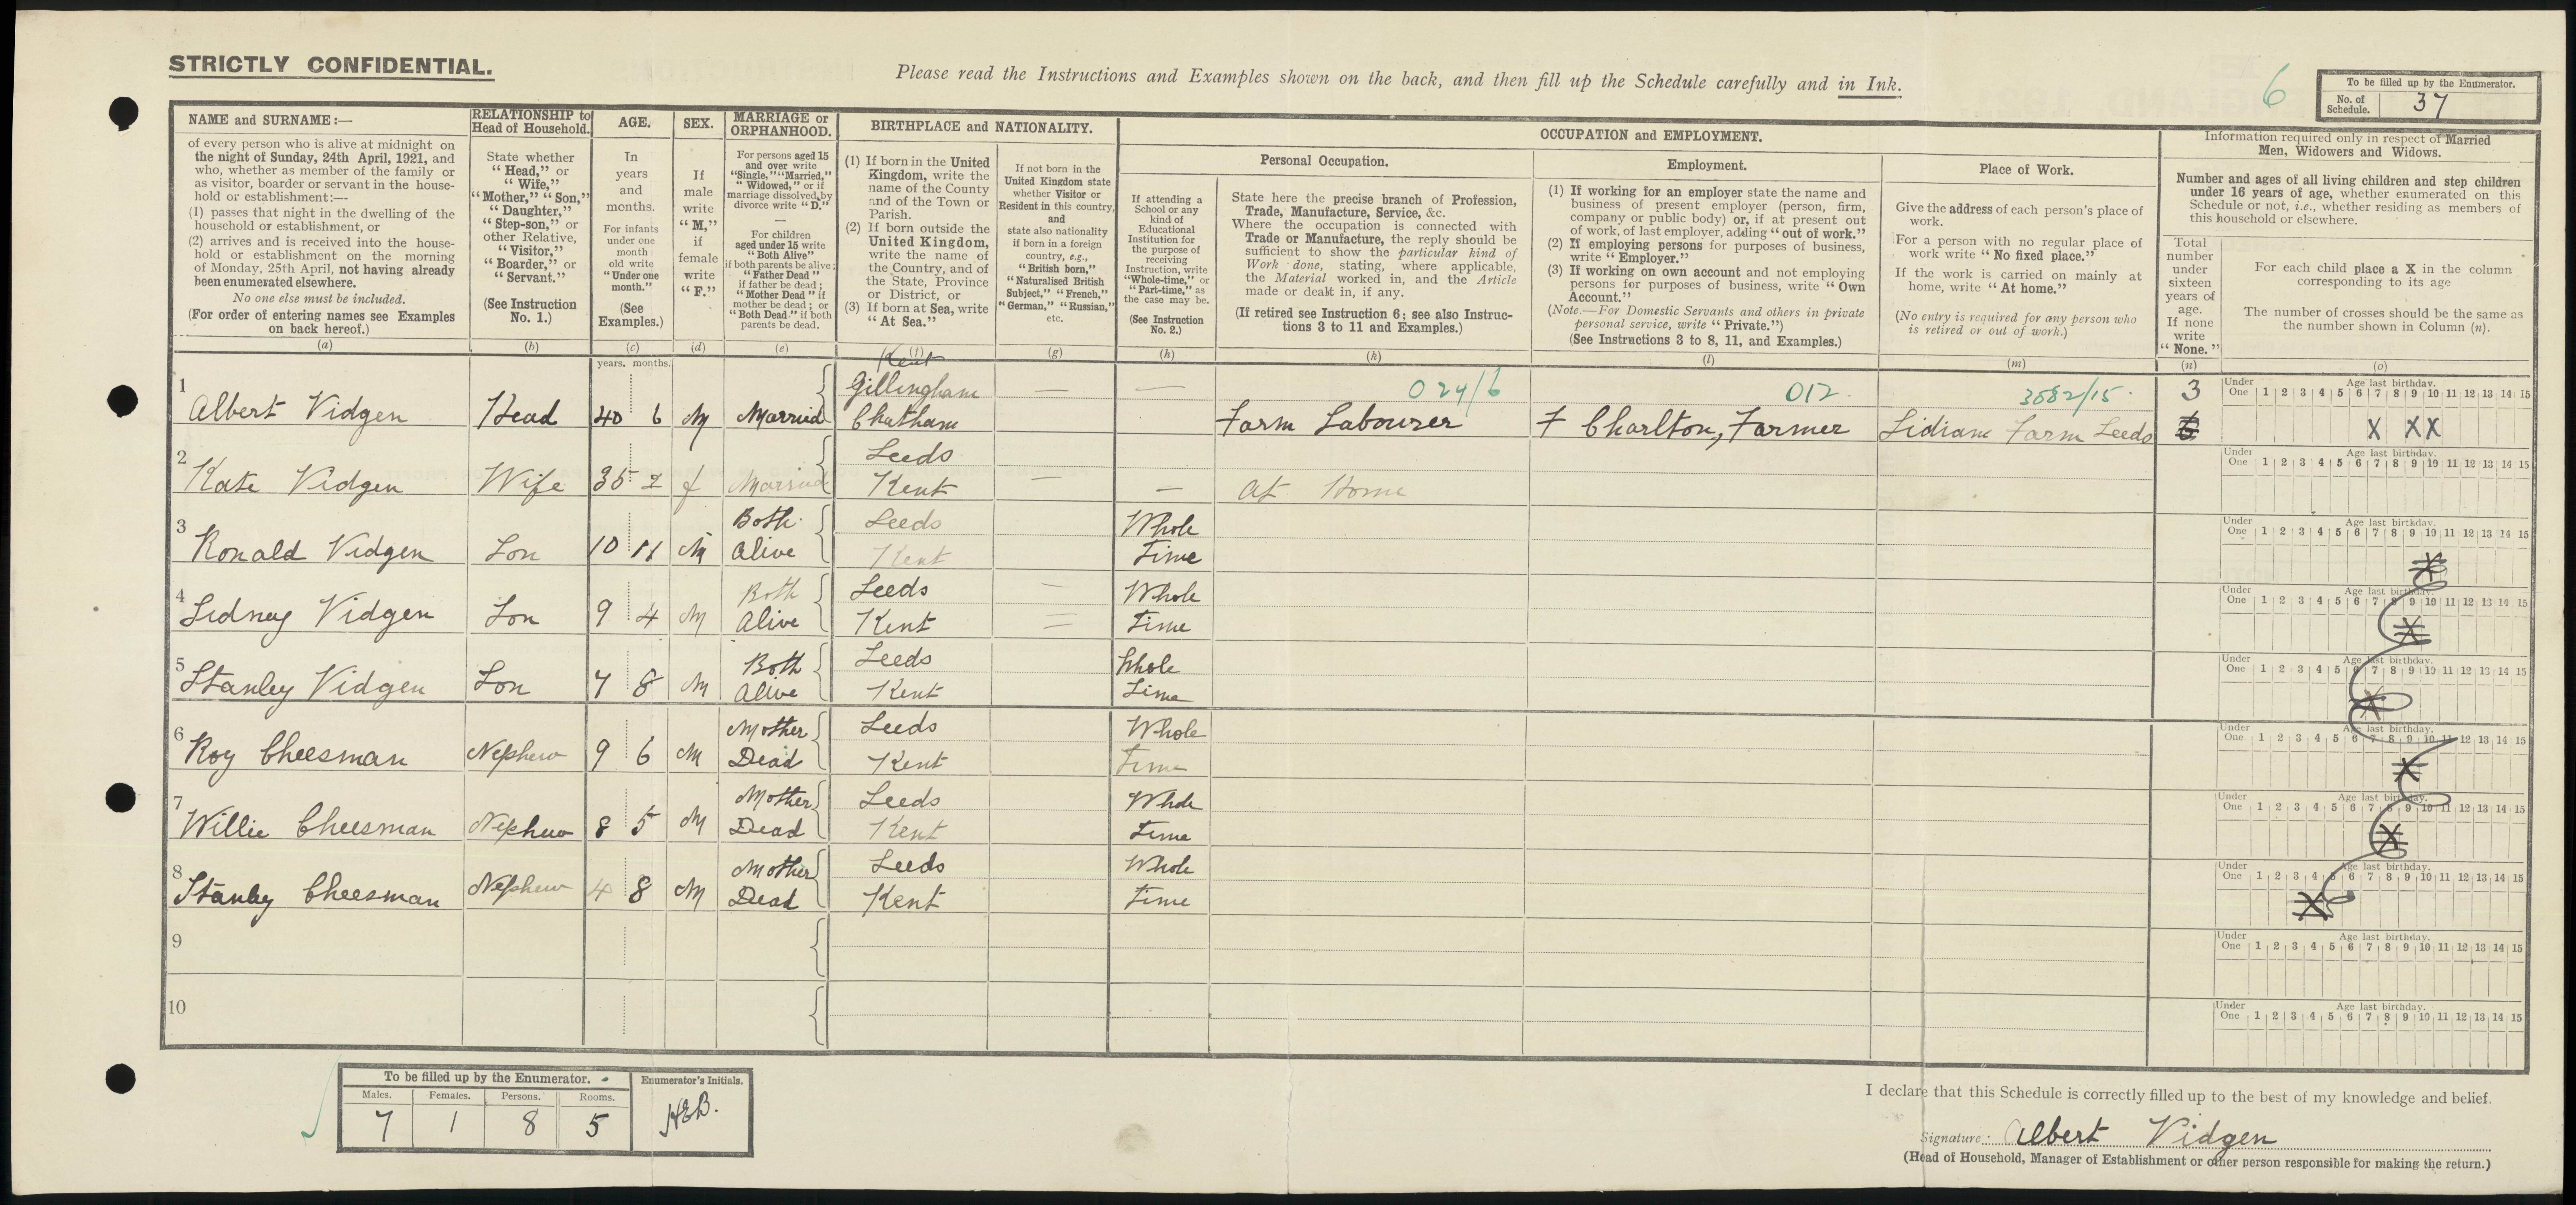 STRICTLY CONFIDENTIAL.
Please read the Instructions and Examples shown on the back, and then fill up the Schedule carefully and in Ink.
6
To be filled up by the Enumerator.
No. of Schedule. 37
NAME and SURNAME:—
of every person who is alive at midnight on
the night of Sunday, 24th April, 1921, and
who, whether as member of the family or
as visitor, boarder or servant in the house-
hold or establishment:—
(1) passes that night in the dwelling of the
household or establishment, or
(2) arrives and is received into the house-
hold or establishment on the morning
of Monday, 25th April, not having already
been enumerated elsewhere.
No one else must be included.
(For order of entering names see Examples
on back hereof.)
(a)
RELATIONSHIP to
Head of Household.
State whether
"Head," or
"Wife,"
"Mother," "Son,"
"Daughter,"
"Step-son," or
other Relative,
"Visitor,"
"Boarder," or
"Servant."
(See Instruction
No. 1.)
(b)
AGE.
In
years
and
months.
For infants
under one
month
old write
"Under one
month."
(See
Examples.)
(c)
years. months.
SEX.
If
male
write
"M,"
if
female
write
"F."
(d)
MARRIAGE or
ORPHANHOOD.
For persons aged 15
and over write
"Single," "Married,"
"Widowed," or if
marriage dissolved by
divorce write "D."
—
For children
aged under 15 write
"Both Alive"
if both parents be alive;
"Father Dead" if
if father be dead;
"Mother Dead" if
mother be dead; or
"Both Dead" if both
parents be dead.
(e)
BIRTHPLACE and NATIONALITY.
(1) If born in the United
Kingdom, write the
name of the County
and of the Town or
Parish.
(2) If born outside the
United Kingdom,
write the name of
the Country, and of
the State, Province
or District, or
(3) If born at Sea, write
"At Sea."
(f)
If not born in the
United Kingdom state
whether Visitor or
Resident in this country,
and
state also nationality
if born in a foreign
country, e.g.,
"British born,"
"Naturalised British
Subject," "French,"
"German," "Russian,"
etc.
(g)
OCCUPATION and EMPLOYMENT.
If attending a
School or any
kind of
Educational
Institution for
the purpose of
receiving
Instruction, write
"Whole-time," or
"Part-time," as
the case may be.
(See Instruction
No. 2.)
(h)
Personal Occupation.
State here the precise branch of Profession,
Trade, Manufacture, Service, &c.
Where the occupation is connected with
Trade or Manufacture, the reply should be
sufficient to show the particular kind of
Work done, stating, where applicable,
the Material worked in, and the Article
made or dealt in, if any.
(If retired see Instruction 6; see also Instruc-
tions 3 to 11 and Examples.)
(k)
Employment.
(1) If working for an employer state the name and
business of present employer (person, firm,
company or public body) or, if at present out
of work, of last employer, adding "out of work."
(2) If employing persons for purposes of business,
write "Employer."
(3) If working on own account and not employing
persons for purposes of business, write "Own
Account."
(Note.—For Domestic Servants and others in private
personal service, write "Private.")
(See Instructions 3 to 8, 11, and Examples.)
(l)
Place of Work.
Give the address of each person's place of
work.
For a person with no regular place of
work write "No fixed place."
If the work is carried on mainly at
home, write "At home."
(No entry is required for any person who
is retired or out of work.)
(m)
Information required only in respect of Married
Men, Widowers and Widows.
Number and ages of all living children and step children
under 16 years of age, whether enumerated on this
Schedule or not, i.e., whether residing as members of
this household or elsewhere.
Total
number
under
sixteen
years of
age.
If none
write
"None."
(n)
For each child place a X in the column
corresponding to its age
The number of crosses should be the same as
the number shown in Column (n).
(o)
Kent
1 Albert Vidgen Head 40 6 M Married Gillingham Chatham — — 024/6 Farm Labourer 012 F Charlton, Farmer 3682/15 Farm Leeds 3 6
Under One 1 2 3 4 5 6 7 8 9 10 11 12 13 14 15 Age last birthday. X X X
2 Kate Vidgen Wife 35 2 f Married Leeds Kent — — At Home
Under One 1 2 3 4 5 6 7 8 9 10 11 12 13 14 15 Age last birthday.
3 Ronald Vidgen Son 10 11 M Both Alive Leeds Kent Whole Time
Under One 1 2 3 4 5 6 7 8 9 10 11 12 13 14 15 Age last birthday. X
4 Sidney Vidgen Son 9 4 M Both Alive Leeds Kent — Whole Time
Under One 1 2 3 4 5 6 7 8 9 10 11 12 13 14 15 Age last birthday. X
5 Stanley Vidgen Son 7 8 M Both Alive Leeds Kent Whole Time
Under One 1 2 3 4 5 6 7 8 9 10 11 12 13 14 15 Age last birthday. X
6 Roy Cheesman Nephew 9 6 M Mother Dead Leeds Kent Whole Time
Under One 1 2 3 4 5 6 7 8 9 10 11 12 13 14 15 Age last birthday. X
7 Willie Cheesman Nephew 8 5 M Mother Dead Leeds Kent Whole Time
Under One 1 2 3 4 5 6 7 8 9 10 11 12 13 14 15 Age last birthday. X
8 Stanley Cheesman Nephew 4 8 M Mother Dead Leeds Kent Whole Time
Under One 1 2 3 4 5 6 7 8 9 10 11 12 13 14 15 Age last birthday. X
9
Under One 1 2 3 4 5 6 7 8 9 10 11 12 13 14 15 Age last birthday.
10
Under One 1 2 3 4 5 6 7 8 9 10 11 12 13 14 15 Age last birthday.
To be filled up by the Enumerator.
Males. Females. Persons. Rooms.
7 1 8 5
Enumerator's Initials.
HEB.
I declare that this Schedule is correctly filled up to the best of my knowledge and belief.
Signature: Albert Vidgen
(Head of Household, Manager of Establishment or other person responsible for making the return.)